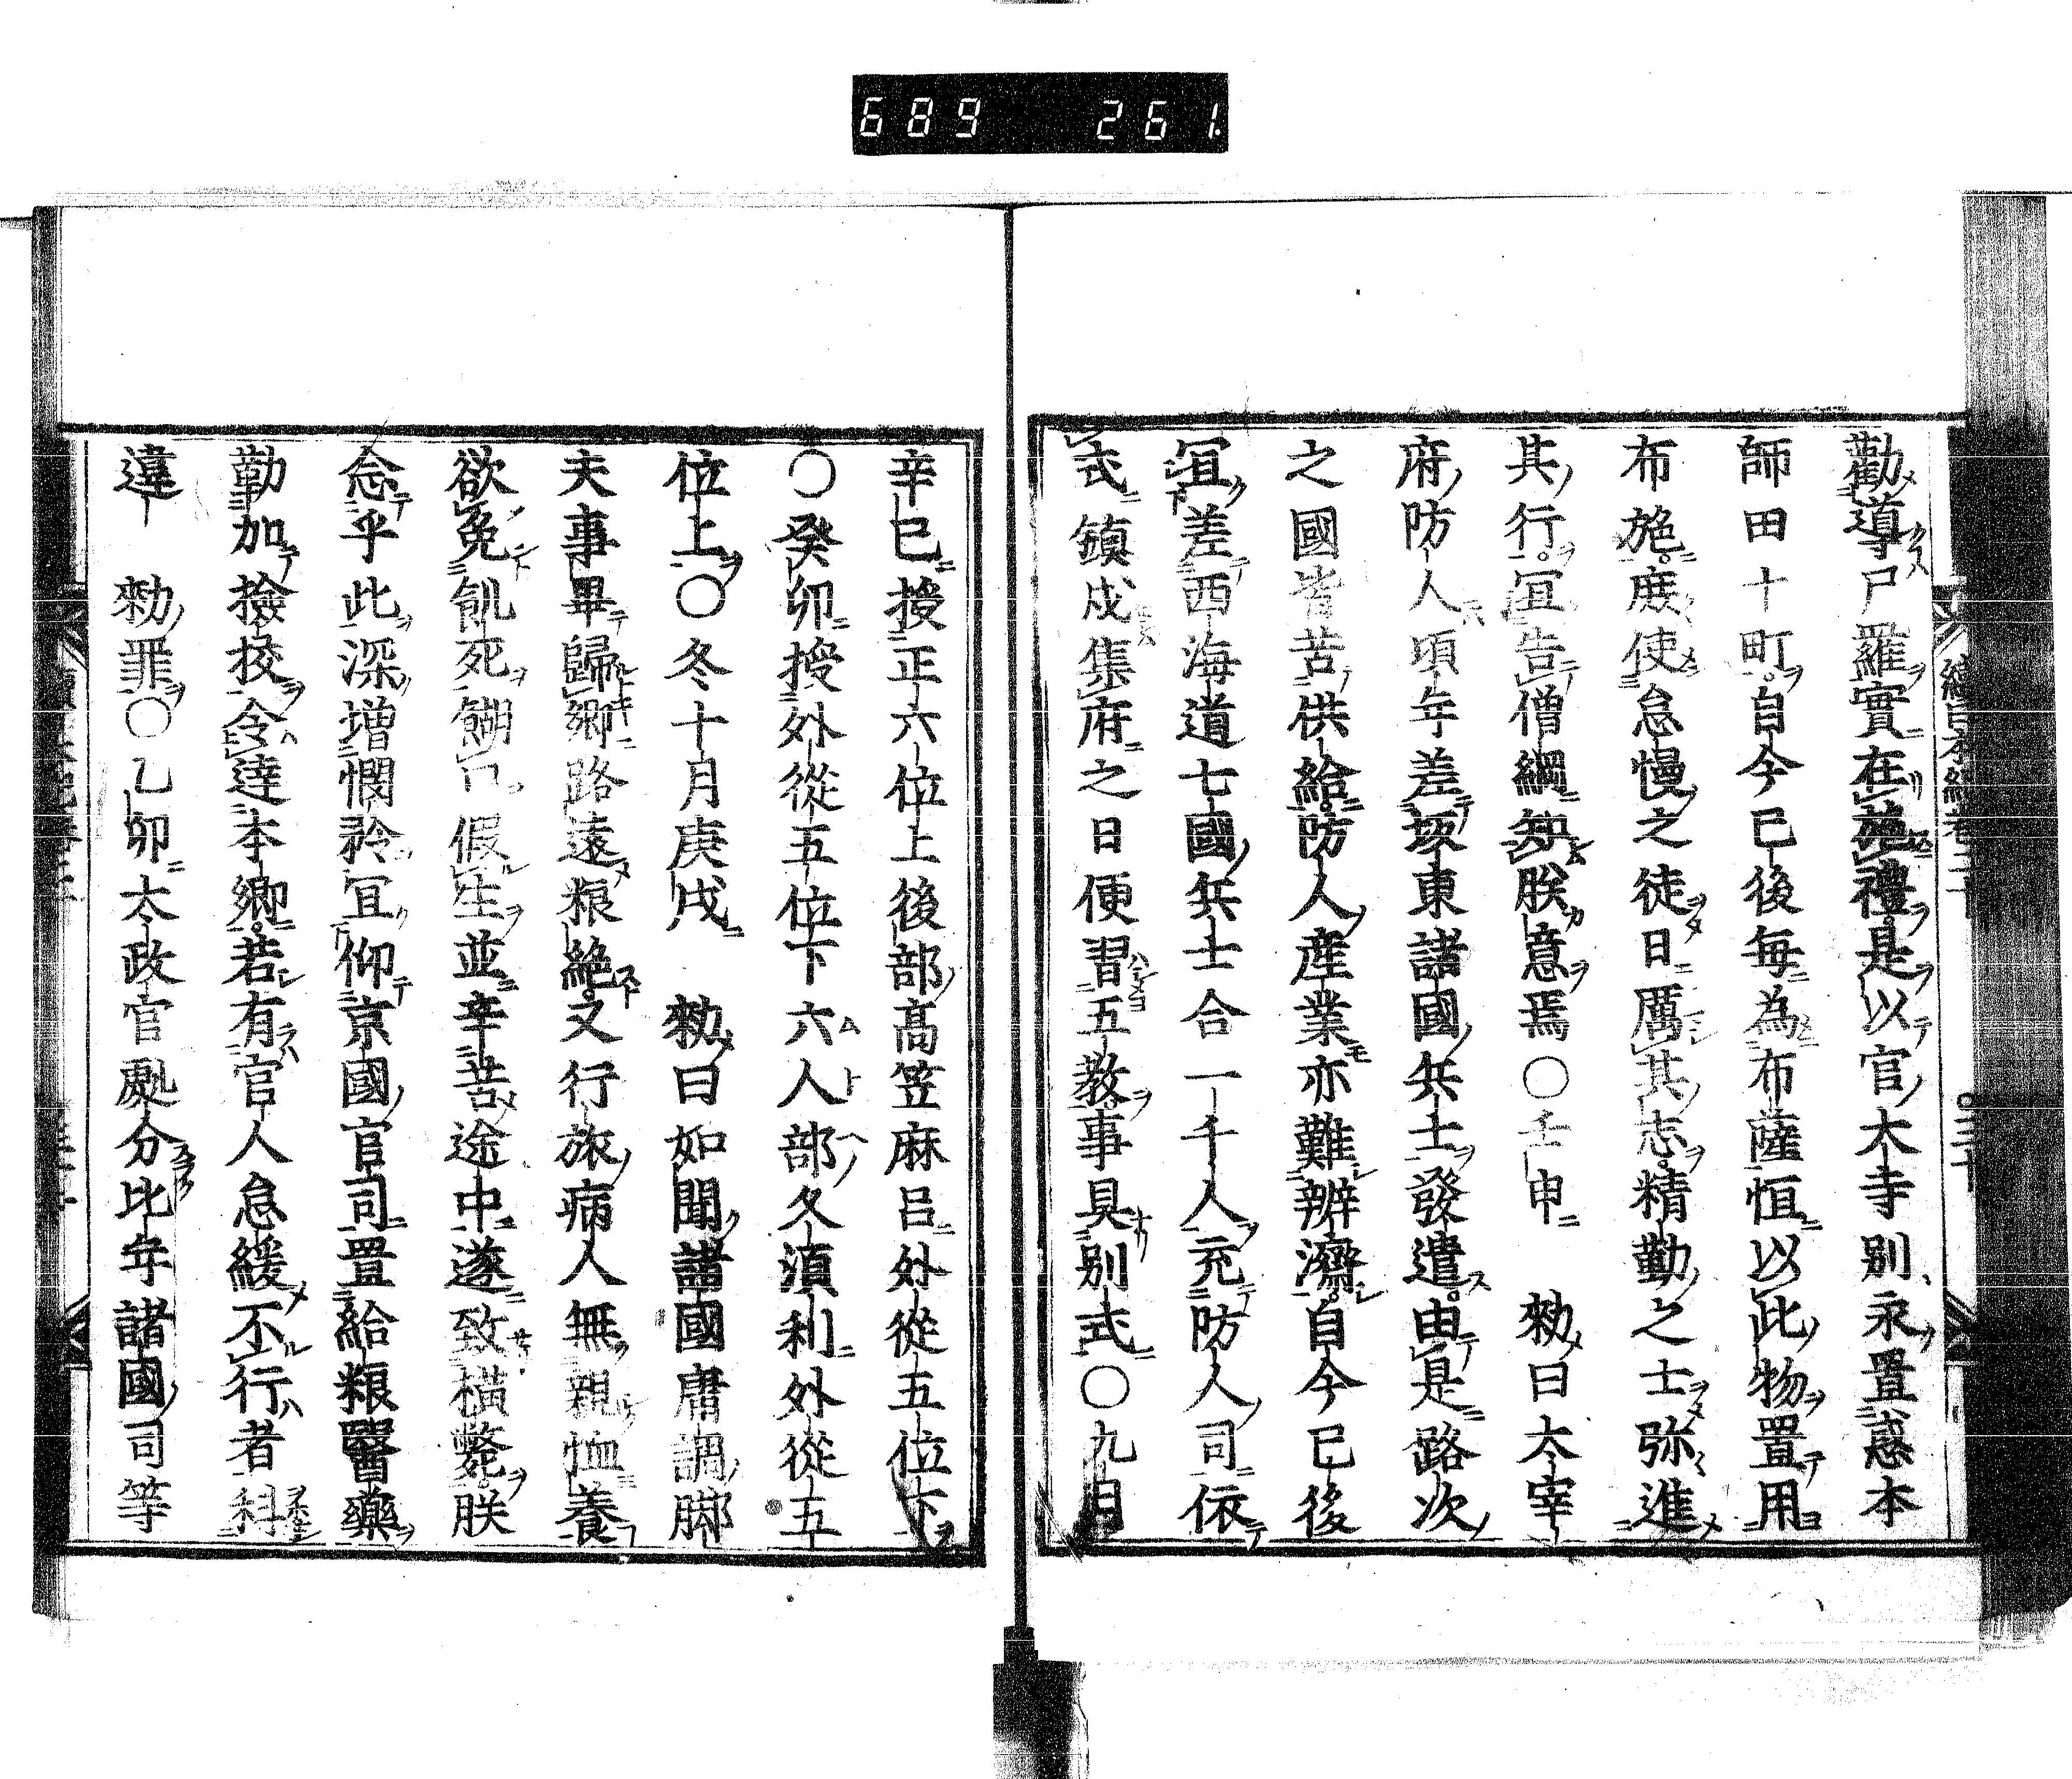 689 261
勸導尸羅實在施禮是以官大寺別永置惑本
師田十町自今已後毎為布薩恒以此物置用
布施庶使怠慢之徒日厲其志精勤之士弥進
其行宜告僧綱知朕意焉〇壬申 勑曰太宰
府防人頃年差坂東諸國兵士發遣由是路次
之國皆苦供給防人産業亦難辨濟自今已後
宜差西海道七國兵士合一千人充防人司依
式鎮戍集府之日便習五教事具別式〇九月
辛巳授正六位上後部高笠麻呂外從五位下
〇癸卯授外從五位下六人部久湏利外從五
位上〇冬十月庚戌 勑曰如聞諸國庸調脚
夫事畢歸鄉路遠粮絶又行旅病人無親恤養
欲免飢死餬口假生並辛苦途中遂致橫斃朕
念乎此深增憫矜宜仰京國官司置給粮醫藥
勤加撿挍令達本鄉若有官人怠緩不行者科
違 勑罪〇乙卯太政官處分比年諸國司等